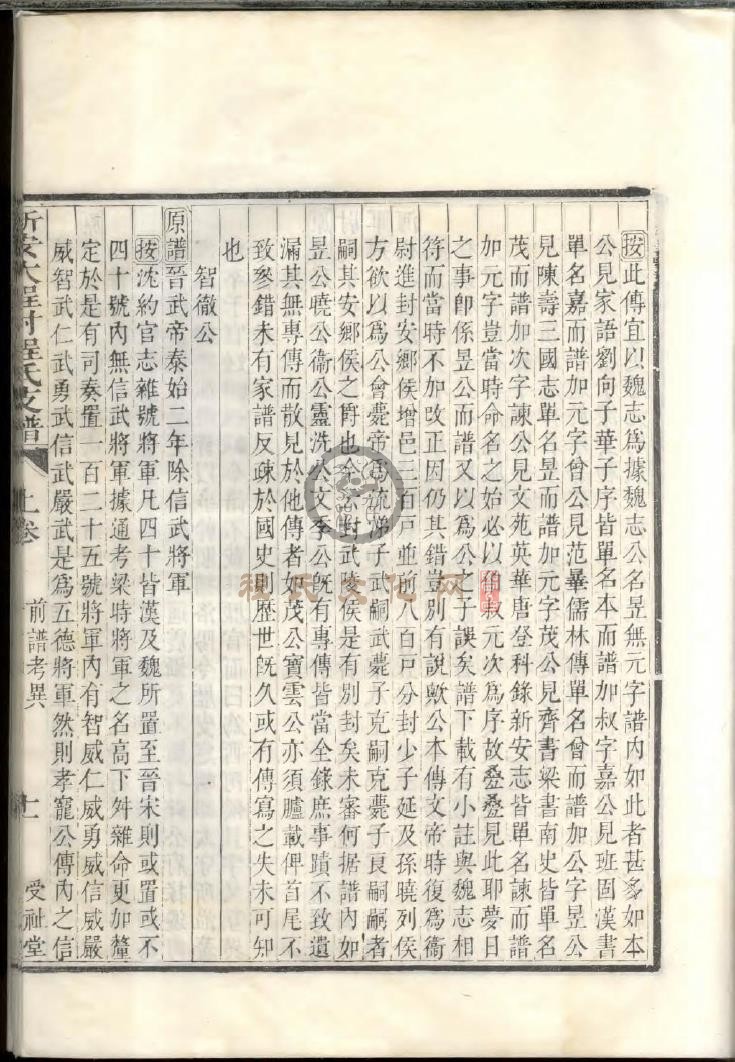 按此傳宜以魏志爲據魏志公名昱無元字譜內如此者甚多如本
公見家語劉向子華子序皆單名本而譜加叔字嘉公見班固漢書
單名嘉而譜加元字曾公見范曄儒林傳單名曾而譜加公字昱公
見陳壽三國志單名昱而譜加元字茂公見齊書梁書南史皆單名
茂而譜加次字諫公見文苑英華唐登科錄新安志皆單名諫而譜
加元字豈當時命名之始必以伯叔元次爲序故叠叠見此耶夢日
之事卽係昱公而譜又以爲公之子誤矣譜下載有小註與魏志相
符而當時不加改正因仍其錯豈別有說歟公本傳文帝時復爲衞
尉進封安鄉侯增邑三百戶並前八百戶分封少子延及孫曉列侯
方欲以爲公會薨帝爲流涕子武嗣武薨子克嗣克薨子良嗣嗣者
嗣其安鄉侯之爵也徐州武陵侯是有別封矣未審何据譜內如
昱公曉公衞公靈洗公文季公旣有專傳皆當全錄庶事蹟不致遺
漏其無專傳而散見於他傳者如茂公寶雲公亦須臚載俾首尾不
致叅錯未有家譜反疎於國史則歷世旣久或有傳寫之失未可知
也
智徹公
原譜晉武帝泰始二年除信武將軍
按沈約官志雜號將軍凡四十皆漢及魏所置至晉宋則或置或不
四十號內無信武將軍據通考梁時將軍之名高下舛雜命更加釐
定於是有司奏置一百二十五號將軍內有智威仁威勇威信威嚴
威智武仁武勇武信武嚴武是爲五德將軍然則孝寵公傳內之信
新安大程村程氏支譜 上卷 前譜考異 十一 受祉堂
程氏文化网